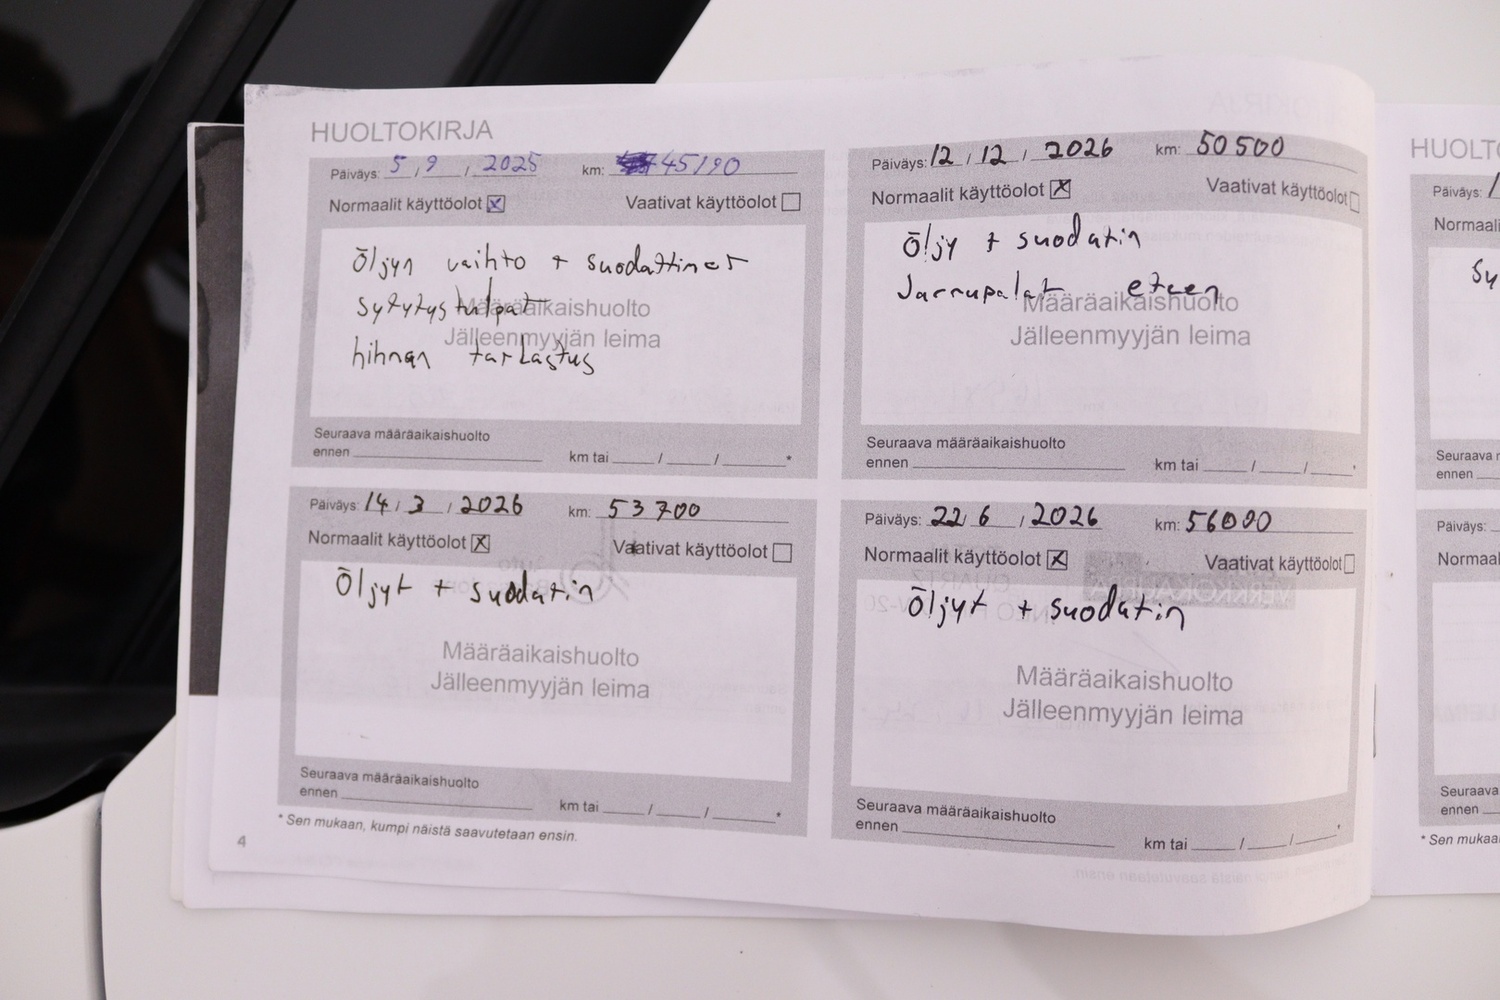 HUOLTOKIRJA
Päiväys: 5 / 9 / 2025 km: 45190
Normaalit käyttöolot ☒ Vaativat käyttöolot ☐
Öljyn vaihto + suodattimet
sytytystulpat
hihnan tarkastus
Määräaikaishuolto
Jälleenmyyjän leima
Seuraava määräaikaishuolto
ennen km tai / / *
Päiväys: 12 / 12 / 2026 km: 50 500
Normaalit käyttöolot ☒ Vaativat käyttöolot ☐
Öljy + suodatin
Jarrupalat eteen
Määräaikaishuolto
Jälleenmyyjän leima
Seuraava määräaikaishuolto
ennen km tai / / *
Päiväys: 14 / 3 / 2026 km: 53 700
Normaalit käyttöolot ☒ Vaativat käyttöolot ☐
Öljyt + suodatin
Määräaikaishuolto
Jälleenmyyjän leima
Seuraava määräaikaishuolto
ennen km tai / / *
Päiväys: 22 / 6 / 2026 km: 56000
Normaalit käyttöolot ☒ Vaativat käyttöolot ☐
Öljyt + suodatin
Määräaikaishuolto
Jälleenmyyjän leima
Seuraava määräaikaishuolto
ennen km tai / / *
* Sen mukaan, kumpi näistä saavutetaan ensin.
4
HUOLTO
Päiväys: 1
Normaali
Sy
Seuraava m
ennen
Päiväys:
Normaal
Seuraava
ennen
* Sen mukaa